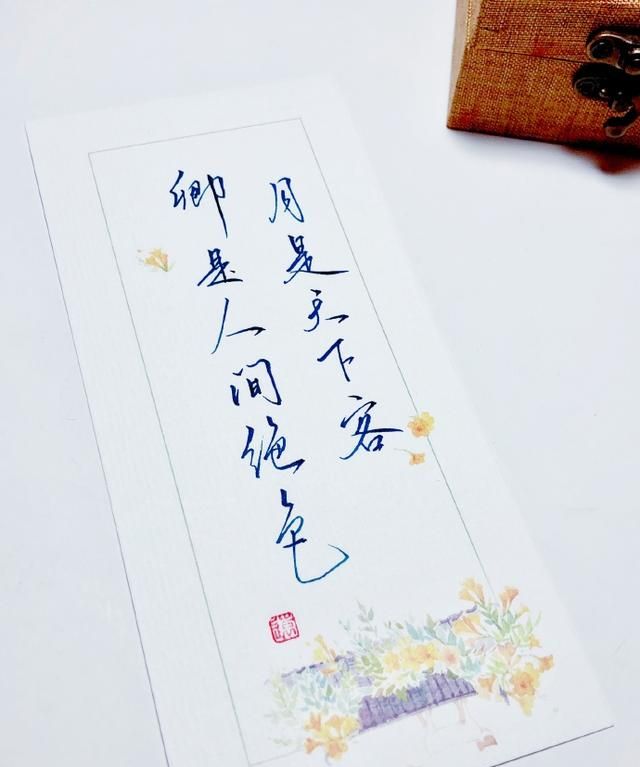 月是天下客
卿是人间绝色